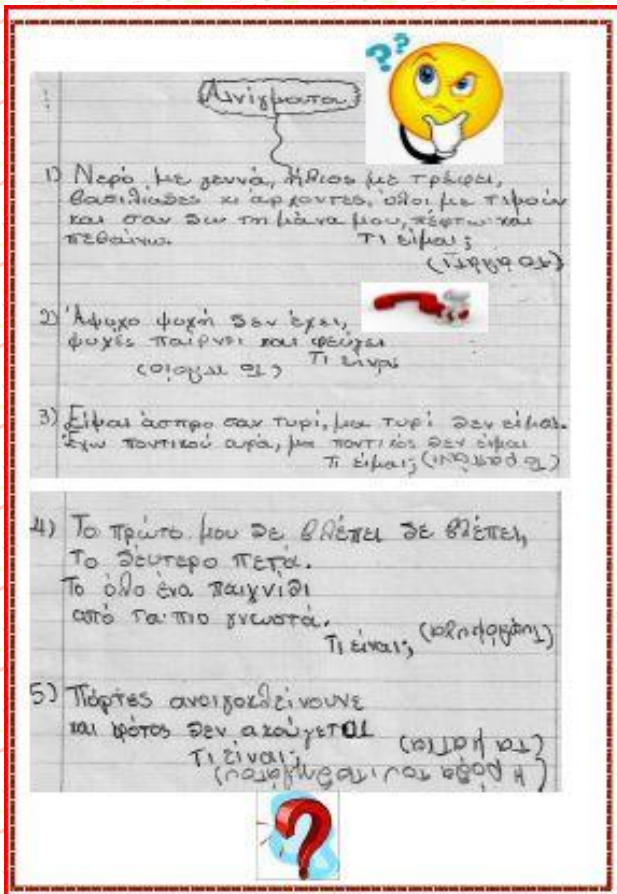 Αινίγματα
1) Νερό με γεννά, ήλιος με τρέφει,
βασιλιάδες κι άρχοντες, όλοι με τιμούν
και σαν δω τη μάνα μου, πέφτω και
πεθαίνω. Τι είμαι;
(Το αλάτι)
2) Άψυχο ψυχή δεν έχει,
ψυχές παίρνει και φεύγει
Τι είναι
(το πλοίο)
3) Είμαι άσπρο σαν τυρί, μα τυρί δεν είμαι.
Έχω ποντικού ουρά, μα ποντικός δεν είμαι
Τι είμαι; (Το ραπανάκι)
4) Το πρώτο μου δε βλέπει δε βλέπει,
Το δεύτερο πετά.
Το όλο ένα παιχνίδι
από τα πιο γνωστά.
Τι είναι; (τυφλόμυγα)
5) Πόρτες ανοιγοκλείνουνε
και κρότος δεν ακούγεται
Τι είναι; (τα μάτια)